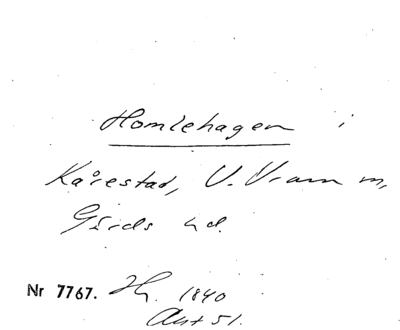 Homlehagen i
Kårestad, V. Vram m,
Gärds hd.
Nr 7767. Hg. 1840
Akt 51.